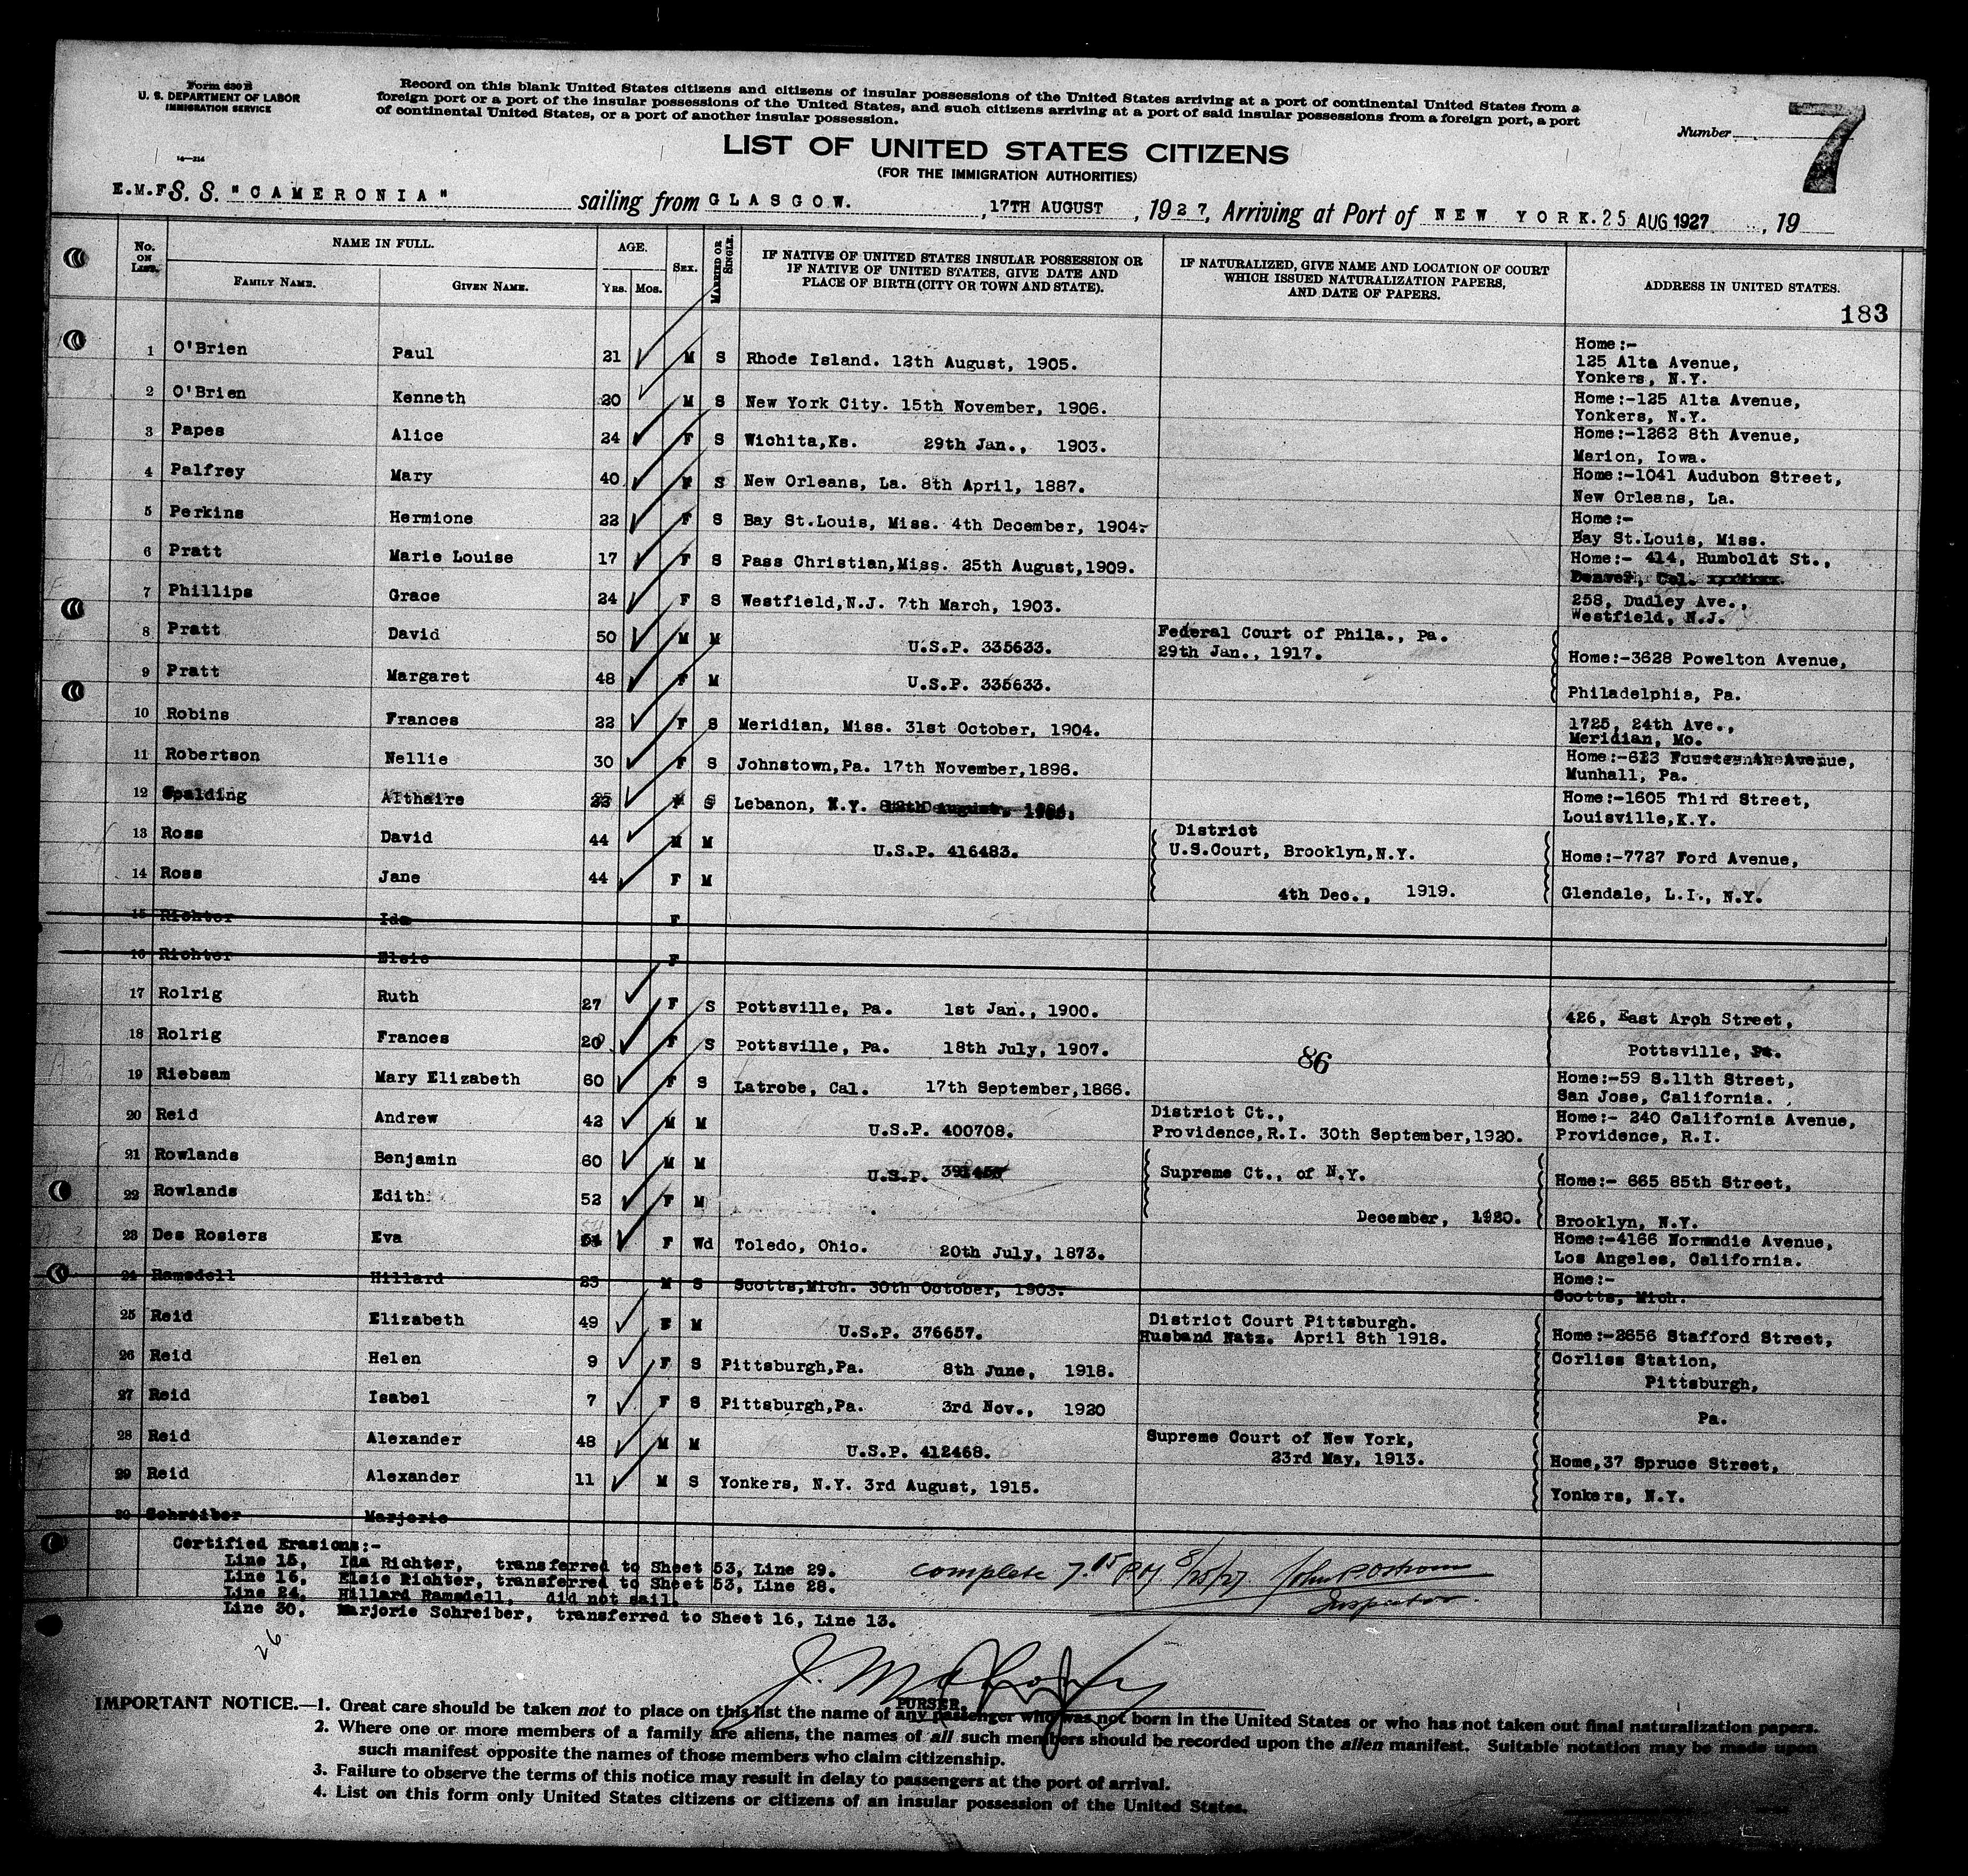 Form 630 B
U. S. DEPARTMENT OF LABOR
IMMIGRATION SERVICE
Record on this blank United States citizens and citizens of insular possessions of the United States arriving at a port of continental United States from a
foreign port or a port of the insular possessions of the United States, and such citizens arriving at a port of said insular possessions from a foreign port, a port
of continental United States, or a port of another insular possession.
Number 7
14—214
LIST OF UNITED STATES CITIZENS
(FOR THE IMMIGRATION AUTHORITIES)
E.M.F S. S. "CAMERONIA" sailing from GLASGOW. , 17TH AUGUST , 1927, Arriving at Port of NEW YORK. 25 AUG 1927 , 19
No. ON LIST. NAME IN FULL. FAMILY NAME. GIVEN NAME. AGE. YRS. MOS. SEX. MARRIED OR SINGLE. IF NATIVE OF UNITED STATES INSULAR POSSESSION OR IF NATIVE OF UNITED STATES, GIVE DATE AND PLACE OF BIRTH (CITY OR TOWN AND STATE). IF NATURALIZED, GIVE NAME AND LOCATION OF COURT WHICH ISSUED NATURALIZATION PAPERS, AND DATE OF PAPERS. ADDRESS IN UNITED STATES.
183
1 O'Brien Paul 21 M S Rhode Island. 12th August, 1905. Home:- 125 Alta Avenue, Yonkers, N.Y.
2 O'Brien Kenneth 20 M S New York City. 15th November, 1906. Home:-125 Alta Avenue, Yonkers, N.Y.
3 Papes Alice 24 F S Wichita,Ks. 29th Jan., 1903. Home:-1262 8th Avenue, Marion, Iowa.
4 Palfrey Mary 40 F S New Orleans, La. 8th April, 1887. Home:-1041 Audubon Street, New Orleans, La.
5 Perkins Hermione 22 F S Bay St.Louis, Miss. 4th December, 1904. Home:- Bay St.Louis, Miss.
6 Pratt Marie Louise 17 F S Pass Christian,Miss. 25th August,1909. Home:- 414, Humboldt St., Denver, Col. xxxxxxx
7 Phillips Grace 24 F S Westfield,N.J. 7th March, 1903. 258, Dudley Ave., Westfield, N.J.
8 Pratt David 50 M M U.S.P. 335633. Federal Court of Phila., Pa. 29th Jan., 1917. Home:-3628 Powelton Avenue,
9 Pratt Margaret 48 F M U.S.P. 335633. Philadelphia, Pa.
10 Robins Frances 22 F S Meridian, Miss. 31st October, 1904. 1725, 24th Ave., Meridian, Mo.
11 Robertson Nellie 30 F S Johnstown,Pa. 17th November,1896. Home:-623 Fourteenth Avenue, Munhall, Pa.
12 Spalding Althaire S Lebanon, Home:-1605 Third Street, Louisville,K.Y.
13 Ross David 44 M M U.S.P. 416483. District U.S.Court, Brooklyn,N.Y. Home:-7727 Ford Avenue,
14 Ross Jane 44 F M 4th Dec., 1919. Glendale, L.I., N.Y.
15 Richter Ida F
16 Richter Elsie F
17 Rolrig Ruth 27 F S Pottsville, Pa. 1st Jan., 1900. 426, East Arch Street,
18 Rolrig Frances 20 F S Pottsville, Pa. 18th July, 1907. 86 Pottsville, Pa.
19 Riebsam Mary Elizabeth 60 F S Latrobe, Cal. 17th September,1866. Home:-59 S.11th Street, San Jose, California.
20 Reid Andrew 42 M M U.S.P. 400708. District Ct., Providence,R.I. 30th September,1920. Home:- 240 California Avenue, Providence, R.I.
21 Rowlands Benjamin 60 M M U.S.P. Supreme Ct., of N.Y. Home:- 665 85th Street,
22 Rowlands Edith 52 F M December, 1920. Brooklyn, N.Y.
23 Des Rosiers Eva F Wd Toledo, Ohio. 20th July, 1873. Home:-4166 Normandie Avenue, Los Angeles, California.
24 Ramsdell Hillard 23 M S Scotts,Mich. 30th October, 1903. Home:- Scotts, Mich.
25 Reid Elizabeth 49 F M U.S.P. 376657. District Court Pittsburgh. Husband Natz. April 8th 1918. Home:-2656 Stafford Street,
26 Reid Helen 9 F S Pittsburgh,Pa. 8th June, 1918. Corliss Station, Pittsburgh,
27 Reid Isabel 7 F S Pittsburgh,Pa. 3rd Nov., 1920 Pa.
28 Reid Alexander 48 M M U.S.P. 412468. Supreme Court of New York, 23rd May, 1913. Home,37 Spruce Street,
29 Reid Alexander 11 M S Yonkers, N.Y. 3rd August, 1915. Yonkers, N.Y.
30 Schreiber Marjorie
Certified Erasions:-
Line 15, Ida Richter, transferred to Sheet 53, Line 29.
Line 16, Elsie Richter, transferred to Sheet 53, Line 28.
Line 24, Hillard Ramsdell, did not sail.
Line 30, Marjorie Schreiber, transferred to Sheet 16, Line 13.
complete 7.15 PM 8/25/27 John P Ostrom
Inspector.
26
PURSER.
IMPORTANT NOTICE.—1. Great care should be taken not to place on this list the name of any passenger who was not born in the United States or who has not taken out final naturalization papers.
2. Where one or more members of a family are aliens, the names of all such members should be recorded upon the alien manifest. Suitable notation may be made upon
such manifest opposite the names of those members who claim citizenship.
3. Failure to observe the terms of this notice may result in delay to passengers at the port of arrival.
4. List on this form only United States citizens or citizens of an insular possession of the United States.